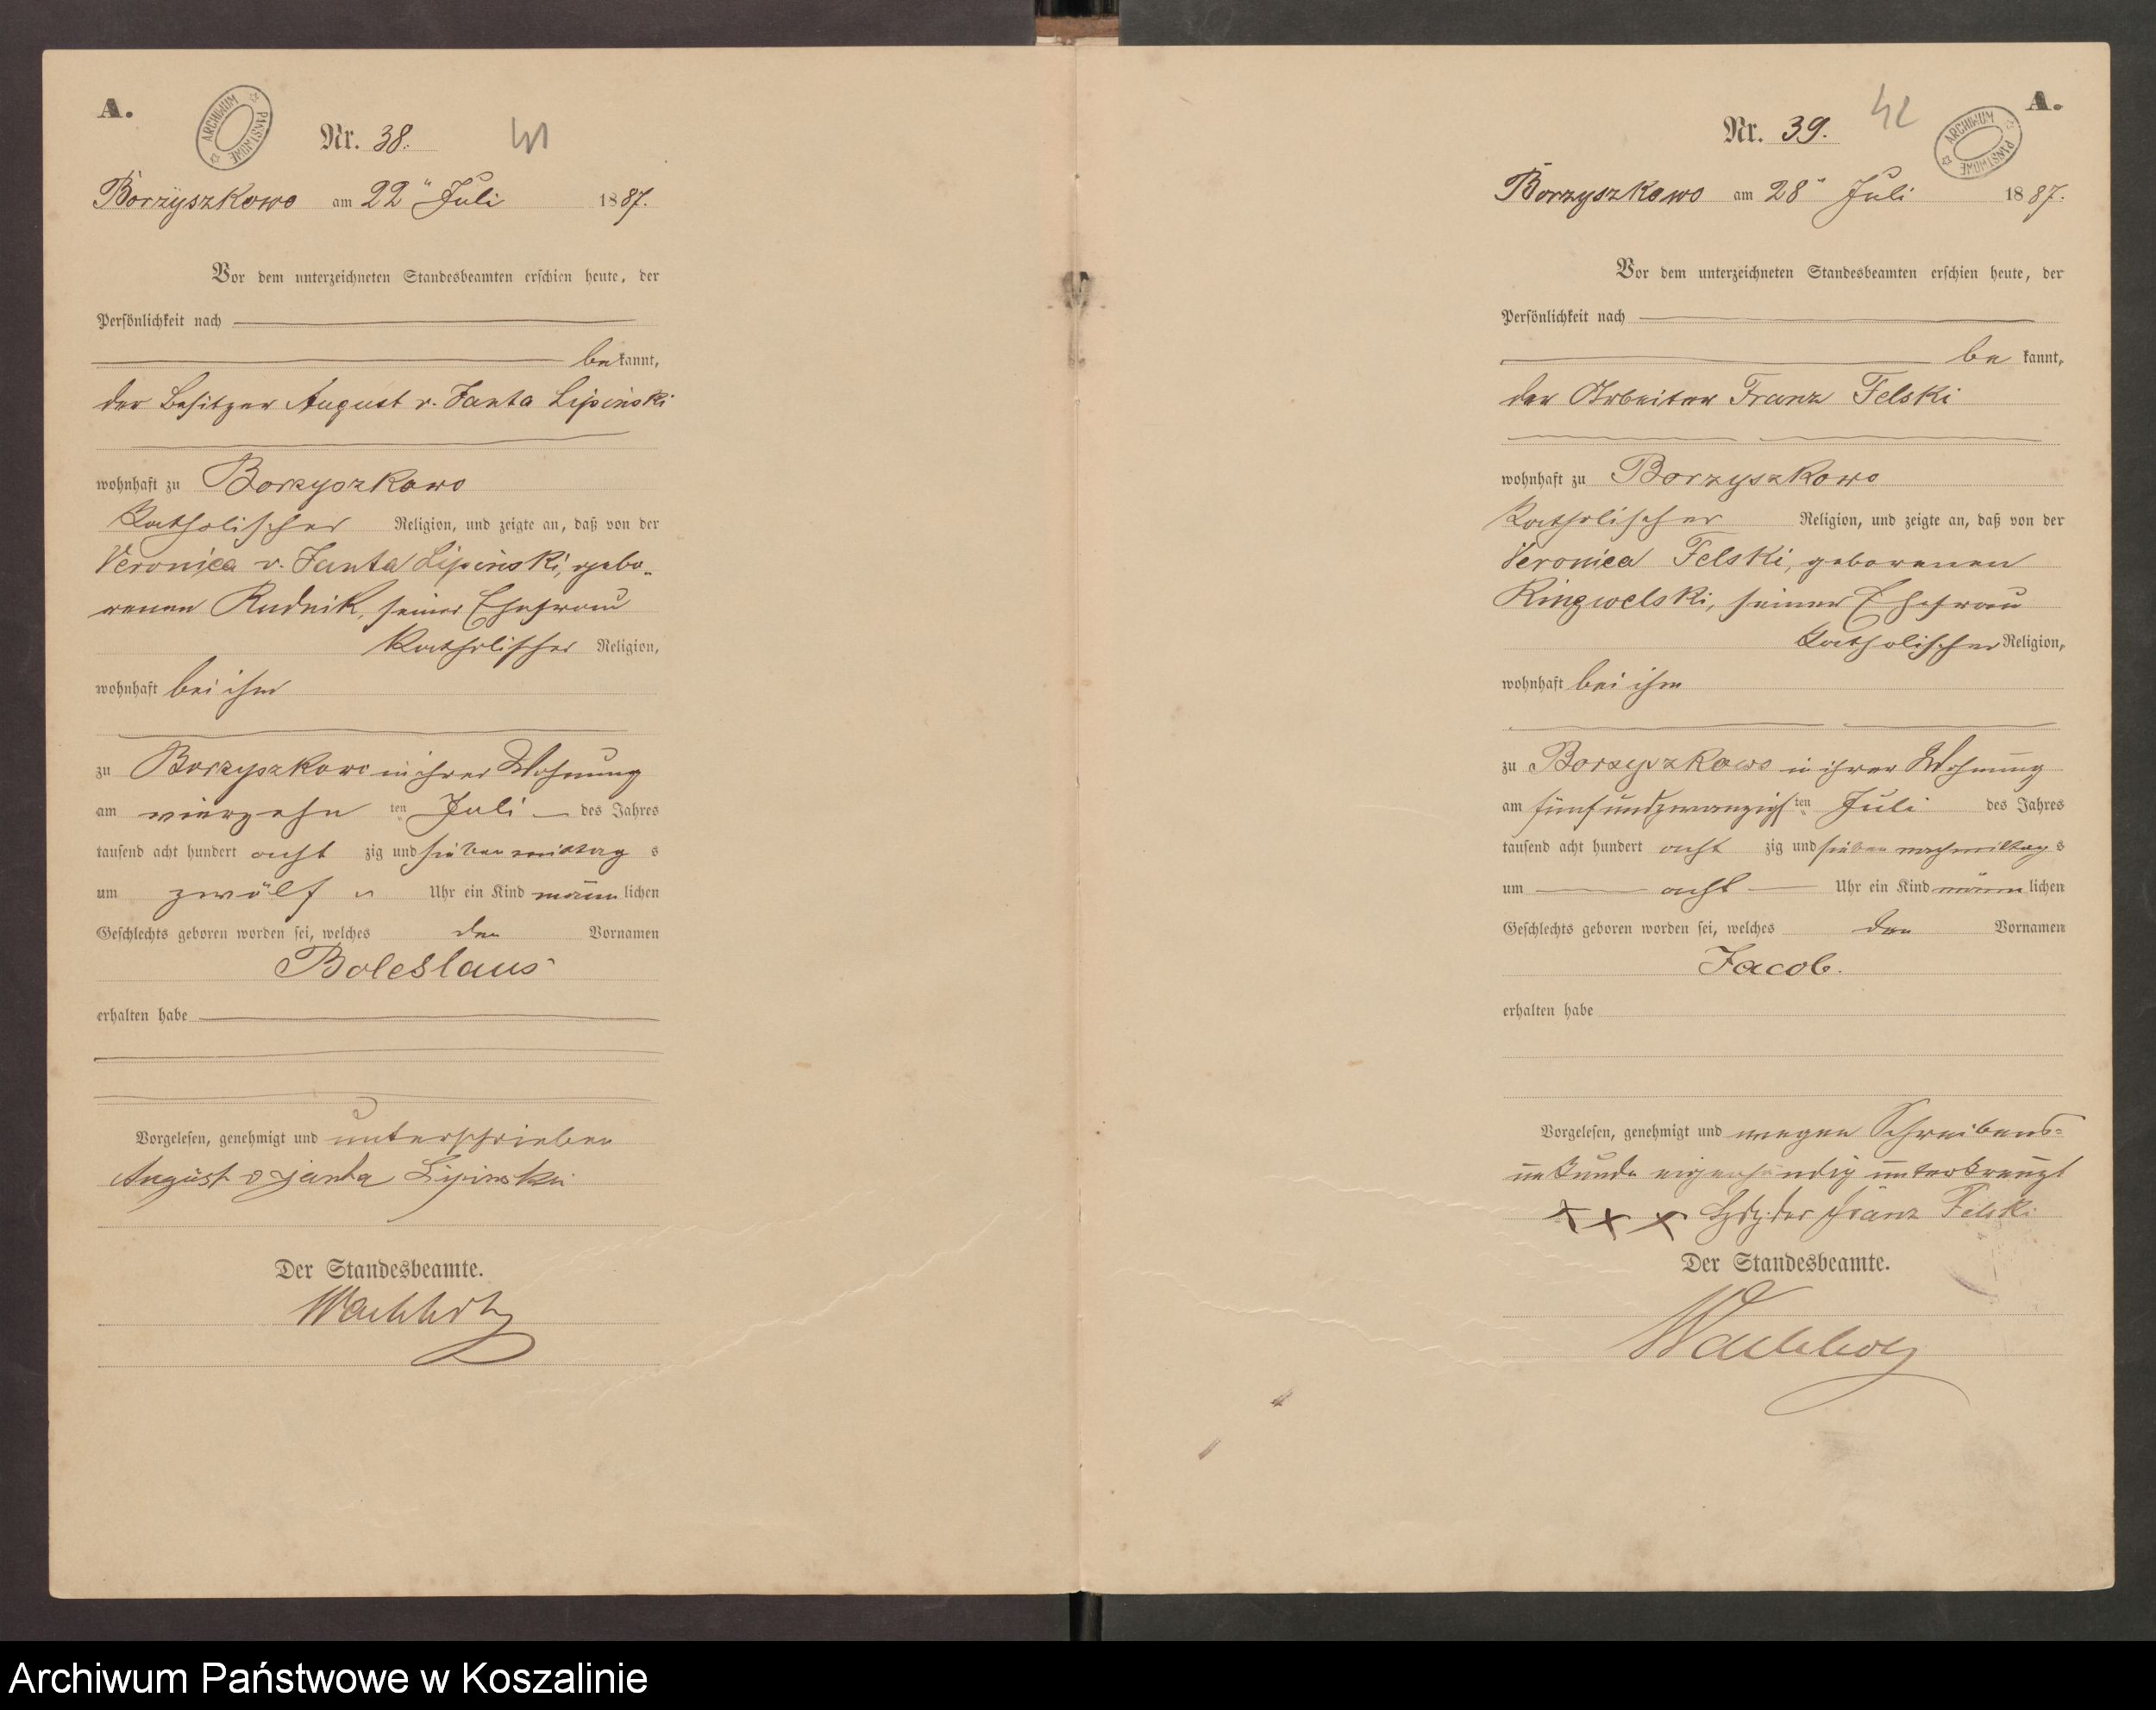 A.
ARCHIWUM PAŃSTWOWE
Nr. 38.
41
Borzyszkowo am 22" Juli 1887.
Vor dem unterzeichneten Standesbeamten erschien heute, der
Persönlichkeit nach
bekannt,
der Besitzer August v. Janta Lipinski
wohnhaft zu Borzyszkowo
katholischer Religion, und zeigte an, daß von der
Veronica v. Janta Lipinski, gebo-
renen Rudnik, seiner Ehefrau
katholischer Religion,
wohnhaft bei ihm
zu Borzyszkowo in ihrer Wohnung
am vierzehn ten Juli des Jahres
tausend acht hundert acht zig und sieben mittag s
um zwölf Uhr ein Kind männlichen
Geschlechts geboren worden sei, welches den Vornamen
Boleslaus
erhalten habe
Vorgelesen, genehmigt und unterschrieben
August v Janta Lipinski
Der Standesbeamte.
Wachholz
A.
ARCHIWUM PAŃSTWOWE
Nr. 39.
42
Borzyszkowo am 28" Juli 1887.
Vor dem unterzeichneten Standesbeamten erschien heute, der
Persönlichkeit nach
be kannt,
der Arbeiter Franz Felski
wohnhaft zu Borzyszkowo
katholischer Religion, und zeigte an, daß von der
Veronica Felski, geborenen
Ringwelski, seiner Ehefrau
katholischer Religion,
wohnhaft bei ihm
zu Borzyszkowo in ihrer Wohnung
am fünfundzwanzigsten Juli des Jahres
tausend acht hundert acht zig und sieben nachmittag s
um acht Uhr ein Kind männlichen
Geschlechts geboren worden sei, welches den Vornamen
Jacob.
erhalten habe
Vorgelesen, genehmigt und wegen Schreibens-
unkunde eigenhändig unterkreuzt
x x x Hdz. des Franz Felski
Der Standesbeamte.
Wachholz
Archiwum Państwowe w Koszalinie